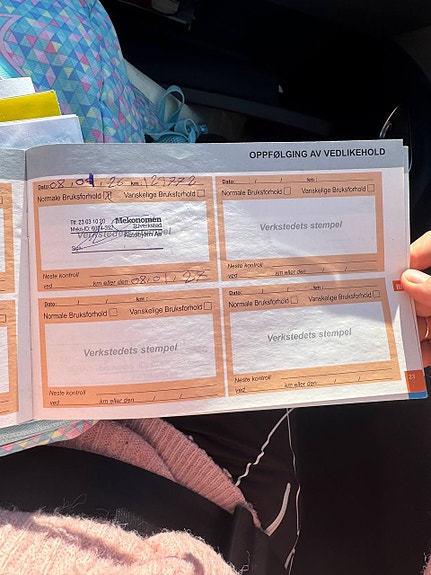 OPPFØLGING AV VEDLIKEHOLD
Dato: 08, 01, 26 km | 29772
Normale Bruksforhold Vanskelige Bruksforhold
Tlf. 23 03 10 20 Mekonomen
Meko-ID: Bilverksted
Verkstedets stempel
Sign.
Neste kontroll
ved km eller den 08,01, 27
Dato: / / km |
Normale Bruksforhold Vanskelige Bruksforhold
Verkstedets stempel
Neste kontroll
ved km eller den / /
Dato: / / km |
Normale Bruksforhold Vanskelige Bruksforhold
Verkstedets stempel
Neste kontroll
ved km eller den / /
Dato: / / km |
Normale Bruksforhold Vanskelige Bruksforhold
Verkstedets stempel
Neste kontroll
ved km eller den / /
23